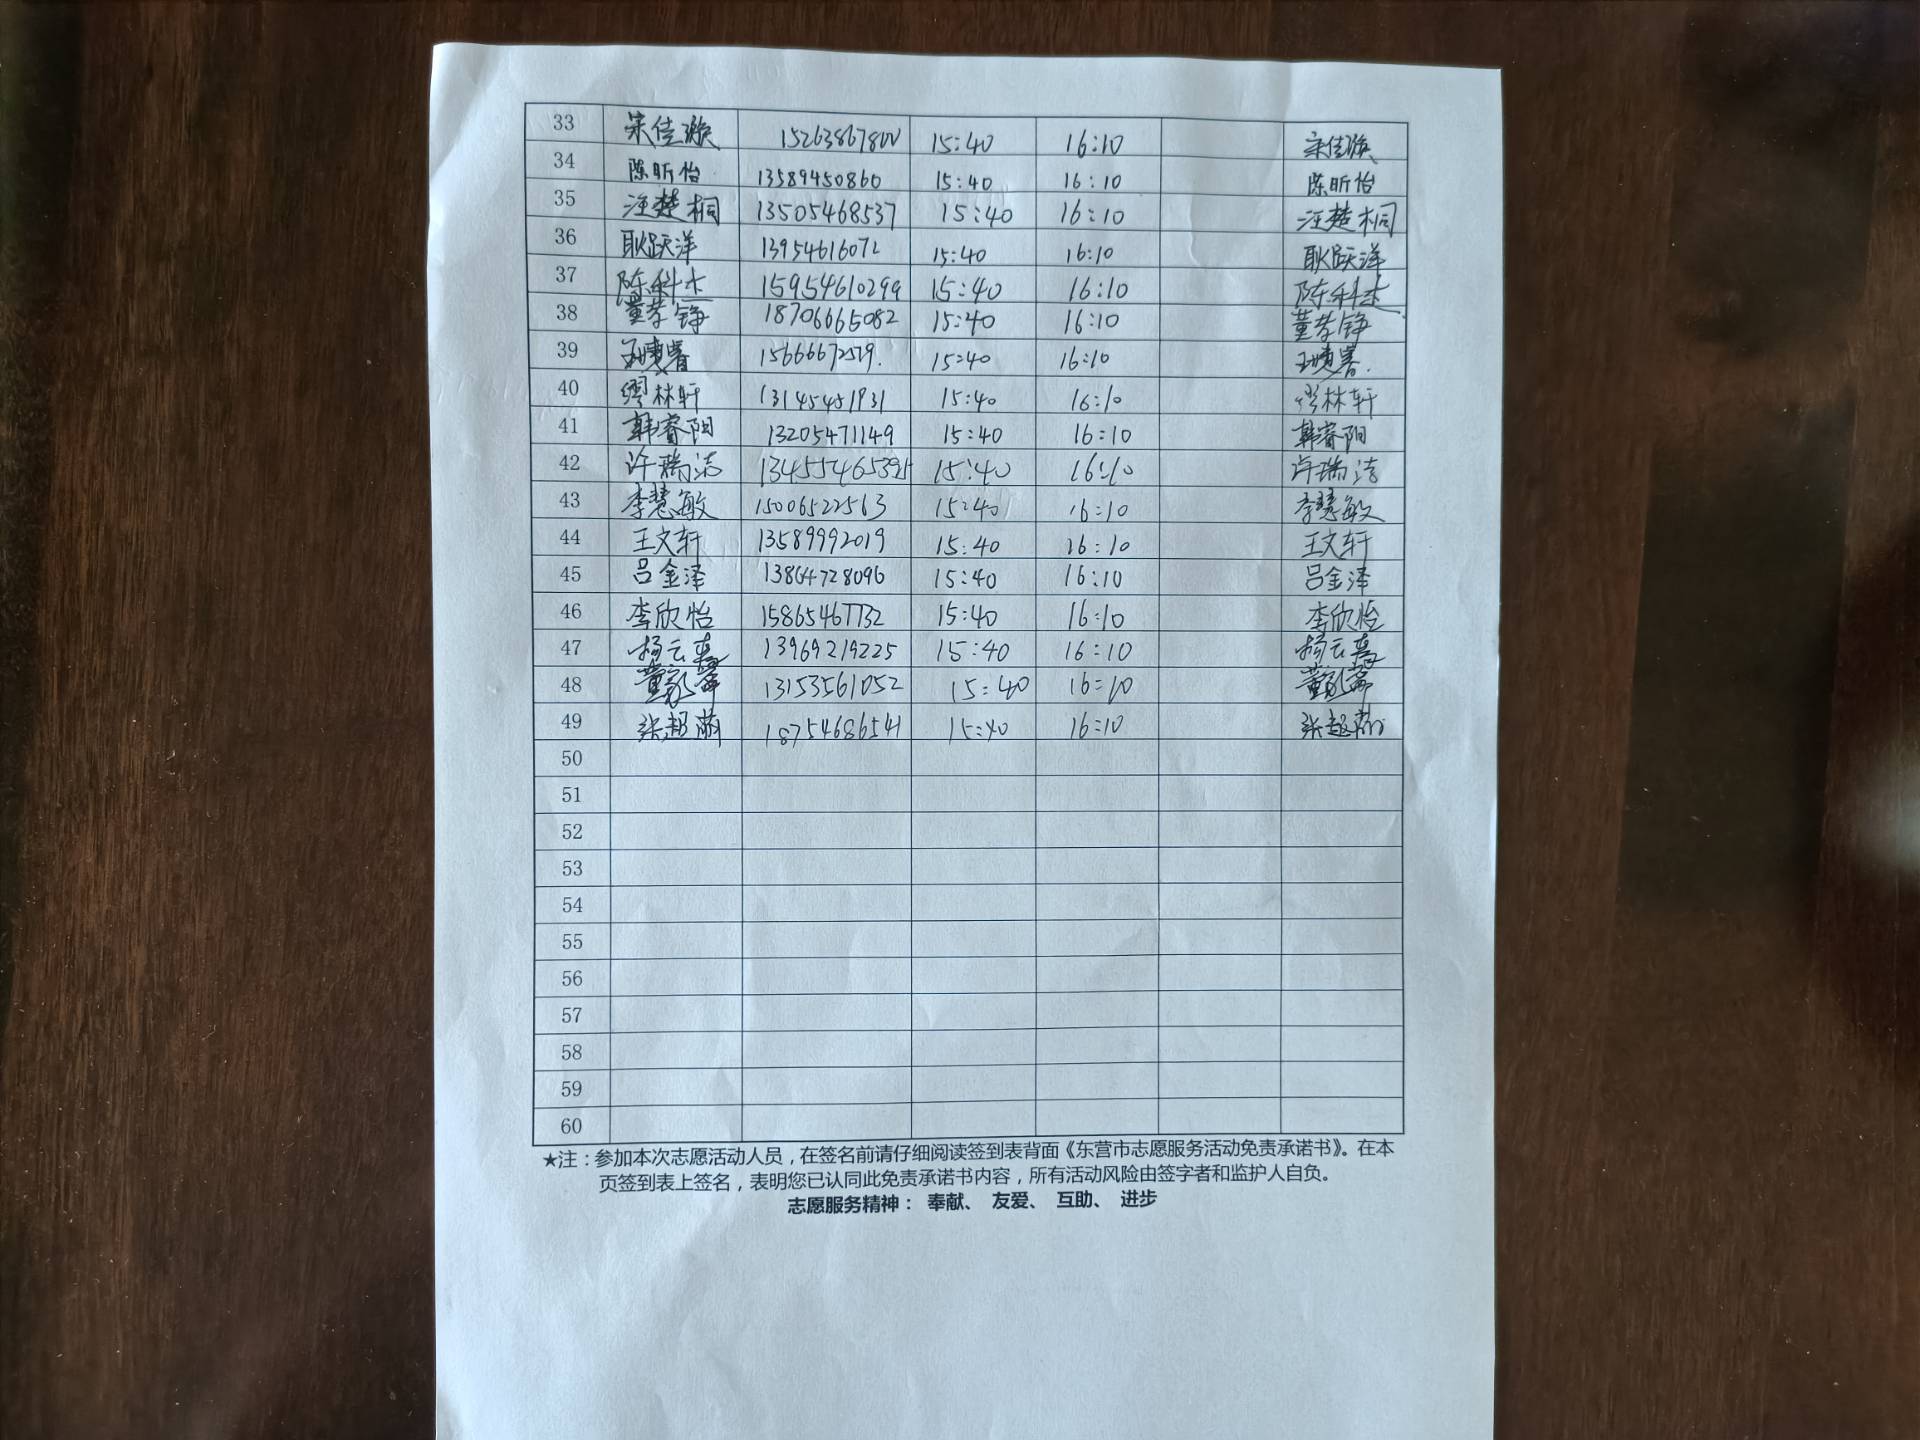 33 宋佳璇 15:40 16:10 宋佳璇
34 陈昕怡 13589450860 15:40 16:10 陈昕怡
35 汪楚桐 13505468537 15:40 16:10 汪楚桐
36 耿跃洋 13954616072 15:40 16:10 耿跃洋
37 陈科杰 15954610299 15:40 16:10 陈科杰
38 18706665082 15:40 16:10
39 15:40 16:10
40 缪林轩 15:40 16:10 缪林轩
41 韩睿阳 13205471149 15:40 16:10 韩睿阳
42 许瑞洁 15:40 16:10 许瑞洁
43 李慧敏 15006522563 15:40 16:10 李慧敏
44 王文轩 13589992019 15:40 16:10 王文轩
45 吕金泽 13864728096 15:40 16:10 吕金泽
46 李欣怡 15865467732 15:40 16:10 李欣怡
47 13969219225 15:40 16:10
48 13153561052 15:40 16:10
49 张超萌 18754686541 15:40 16:10 张超萌
50
51
52
53
54
55
56
57
58
59
60
★注：参加本次志愿活动人员，在签名前请仔细阅读签到表背面《东营市志愿服务活动免责承诺书》。在本
页签到表上签名，表明您已认同此免责承诺书内容，所有活动风险由签字者和监护人自负。
志愿服务精神： 奉献、 友爱、 互助、 进步